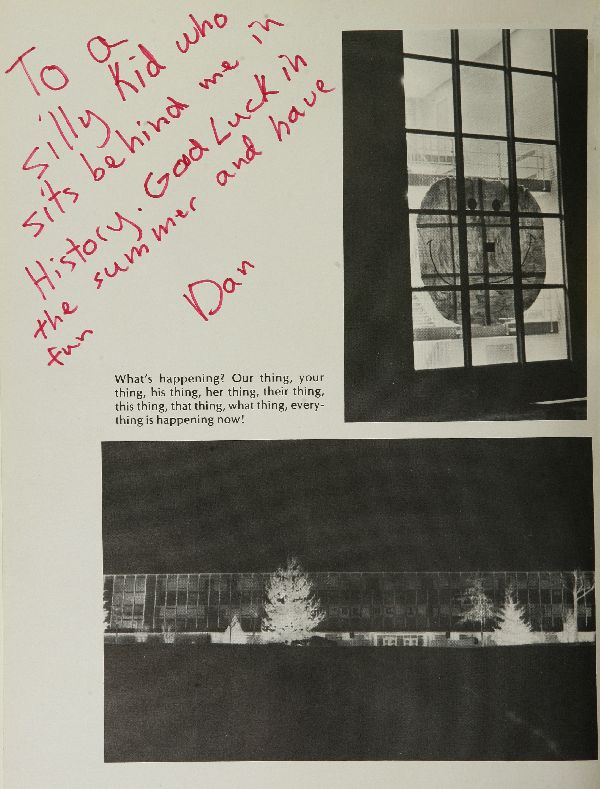 To a
silly kid who
sits behind me in
History. Good Luck in
the summer and have
fun
Dan
What's happening? Our thing, your
thing, his thing, her thing, their thing,
this thing, that thing, what thing, every-
thing is happening now!